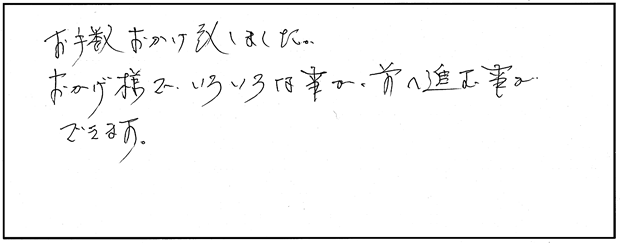 お手数おかけ致しました。
おかげ様で、いろいろな事が、前へ進む事が
できます。